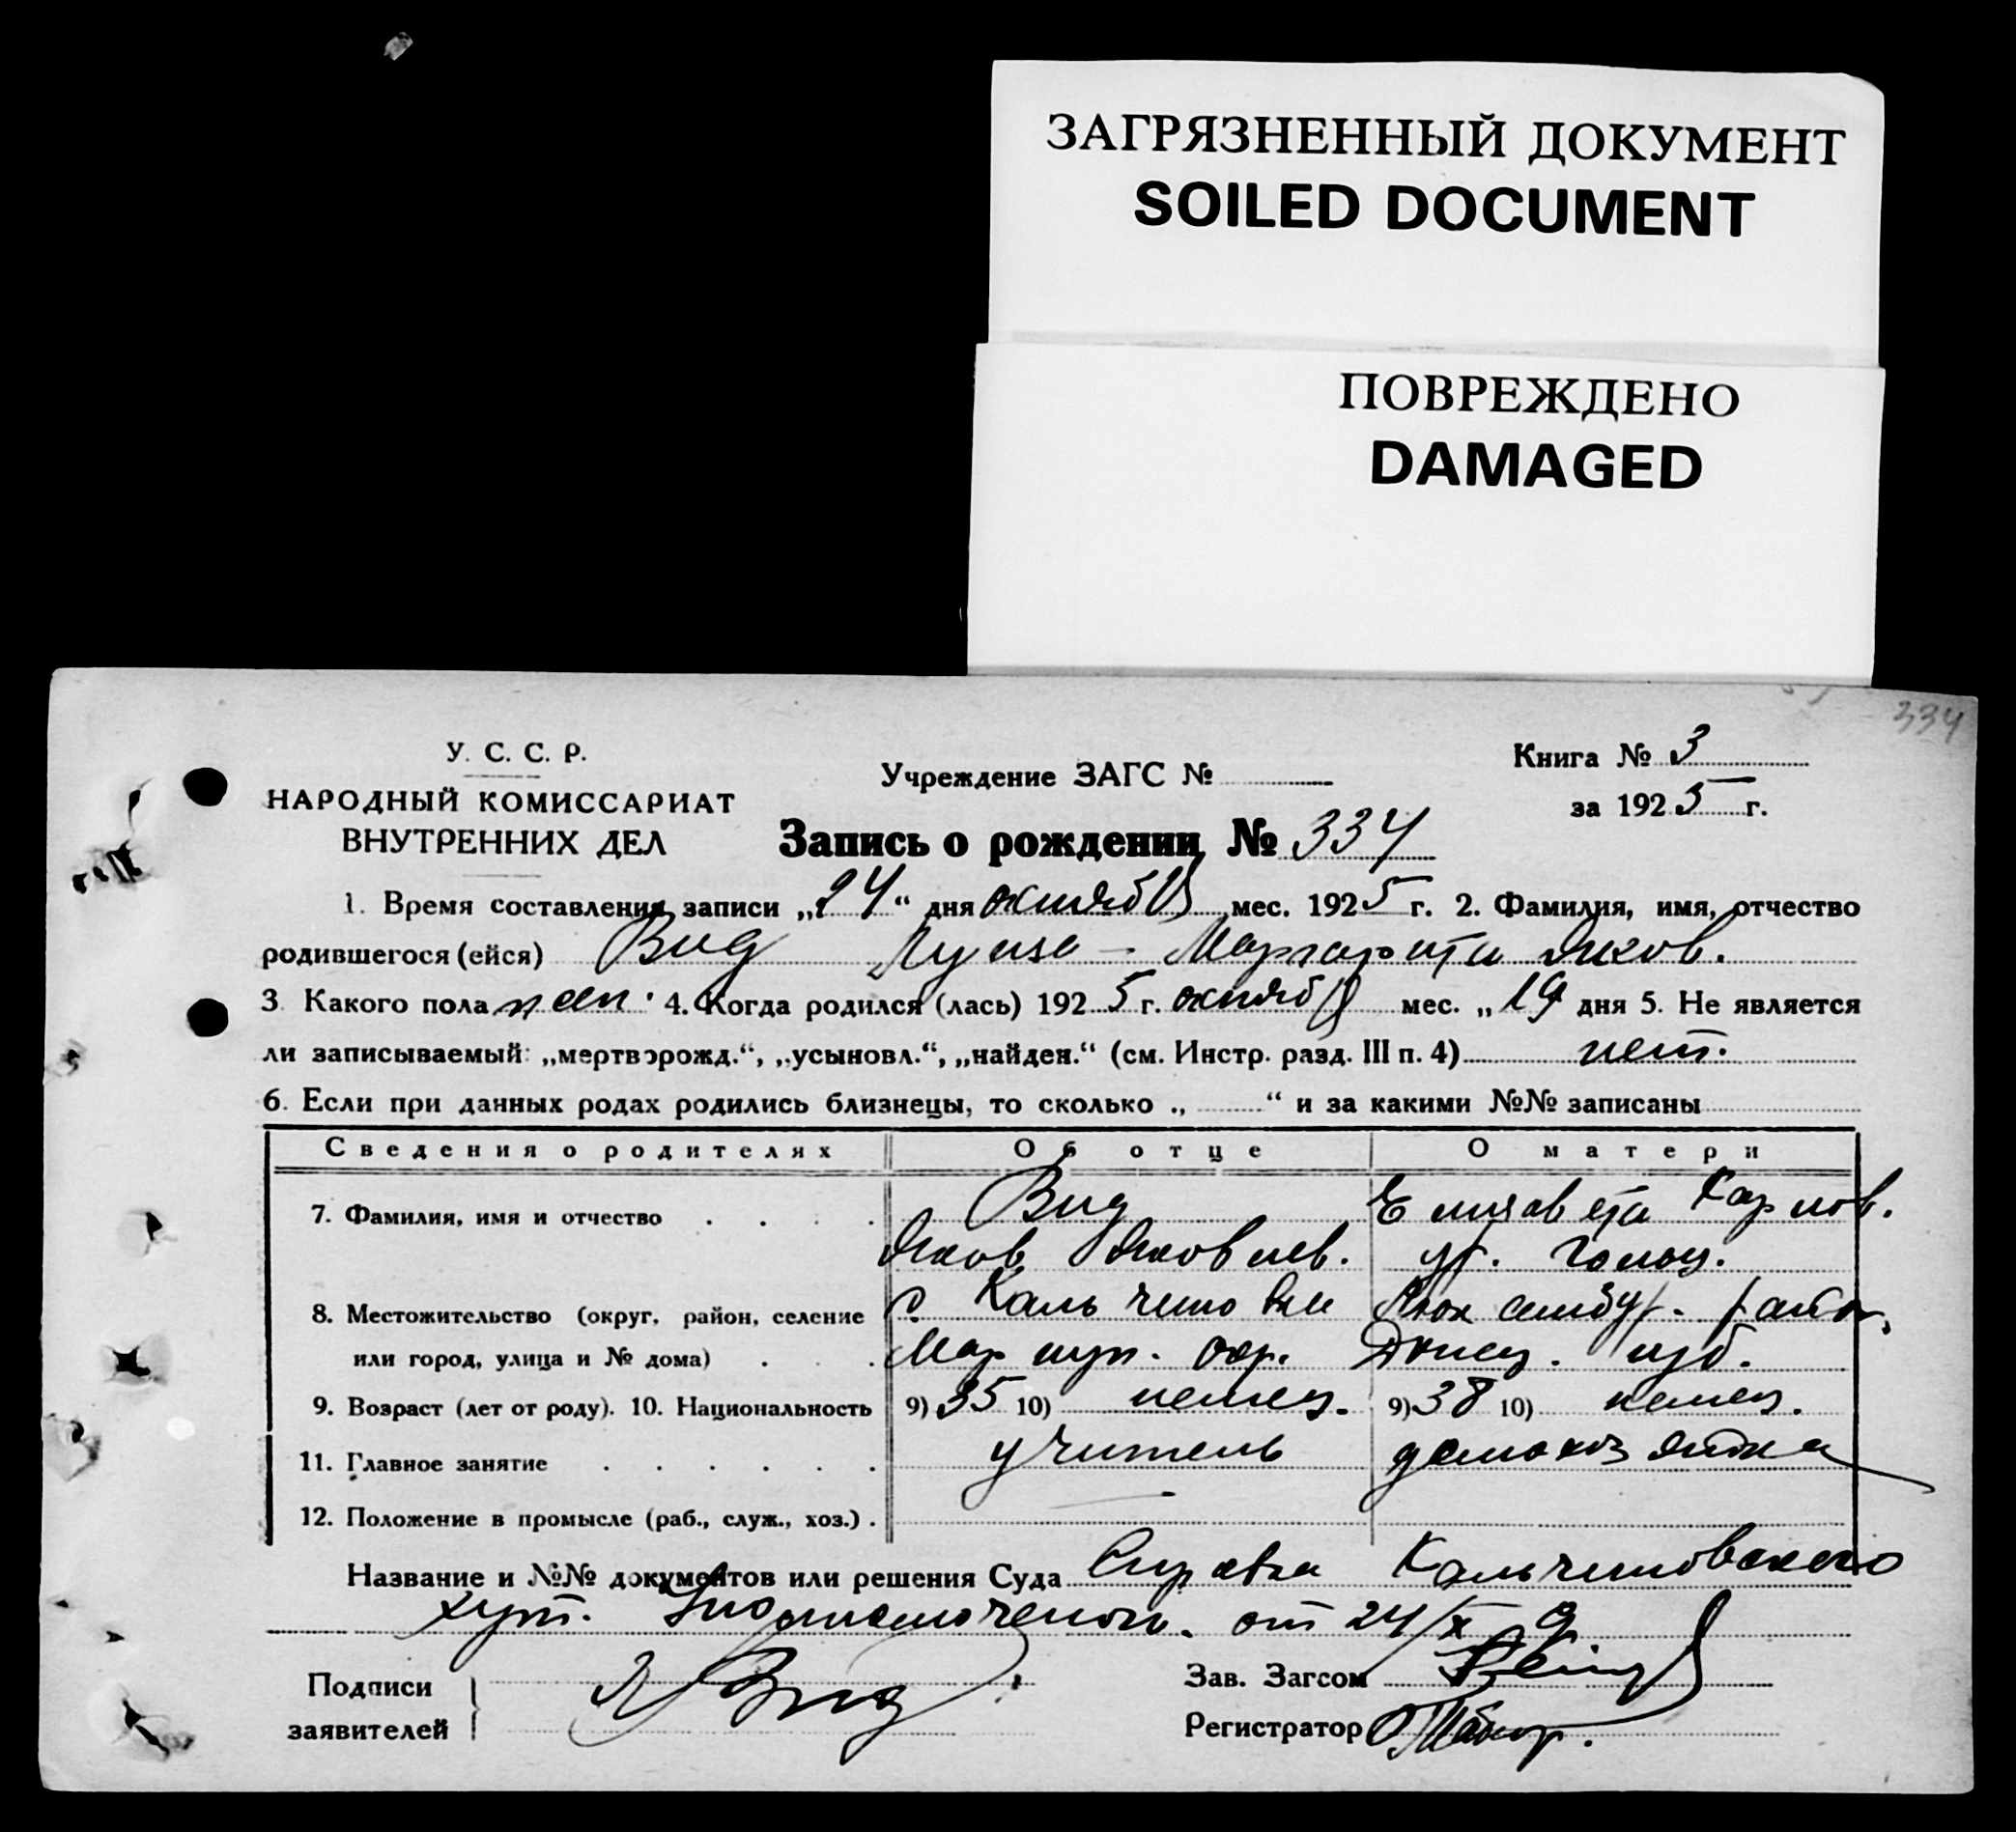 ЗАГРЯЗНЕННЫЙ ДОКУМЕНТ
SOILED DOCUMENT
ПОВРЕЖДЕНО
DAMAGED
334
У. С. С. Р.
НАРОДНЫЙ КОМИССАРИАТ
ВНУТРЕННИХ ДЕЛ
Учреждение ЗАГС №
Книга № 3
за 1925 г.
Запись о рождении № 334
1. Время составления записи „24“ дня октября мес. 1925 г. 2. Фамилия, имя, отчество
родившегося (ейся) Вид Луиза - Маргарита Яков.
3. Какого пола жен. 4. Когда родился (лась) 1925 г. октября мес. „19 дня 5. Не является
ли записываемый: „мертворожд.“, „усыновл.“, „найден.“ (см. Инстр. разд. III п. 4) нет.
6. Если при данных родах родились близнецы, то сколько „ “ и за какими №№ записаны
Сведения о родителях Об отце О матери
7. Фамилия, имя и отчество Вид Елизавета Карлов.
Яков Яковлев. ур. Гольц.
8. Местожительство (округ, район, селение с. Кальчиновка Люксембург. район,
или город, улица и № дома) Мариуп. окр. Донец. губ.
9. Возраст (лет от роду). 10. Национальность 9) 35 10) немец. 9) 38 10) немец.
11. Главное занятие учитель домохозяйка
12. Положение в промысле (раб., служ., хоз.) . —
Название и №№ документов или решения Суда Справка Кальчиновского
хут. от 24/X
Подписи
заявителей Я Вид
Зав. Загсом
Регистратор